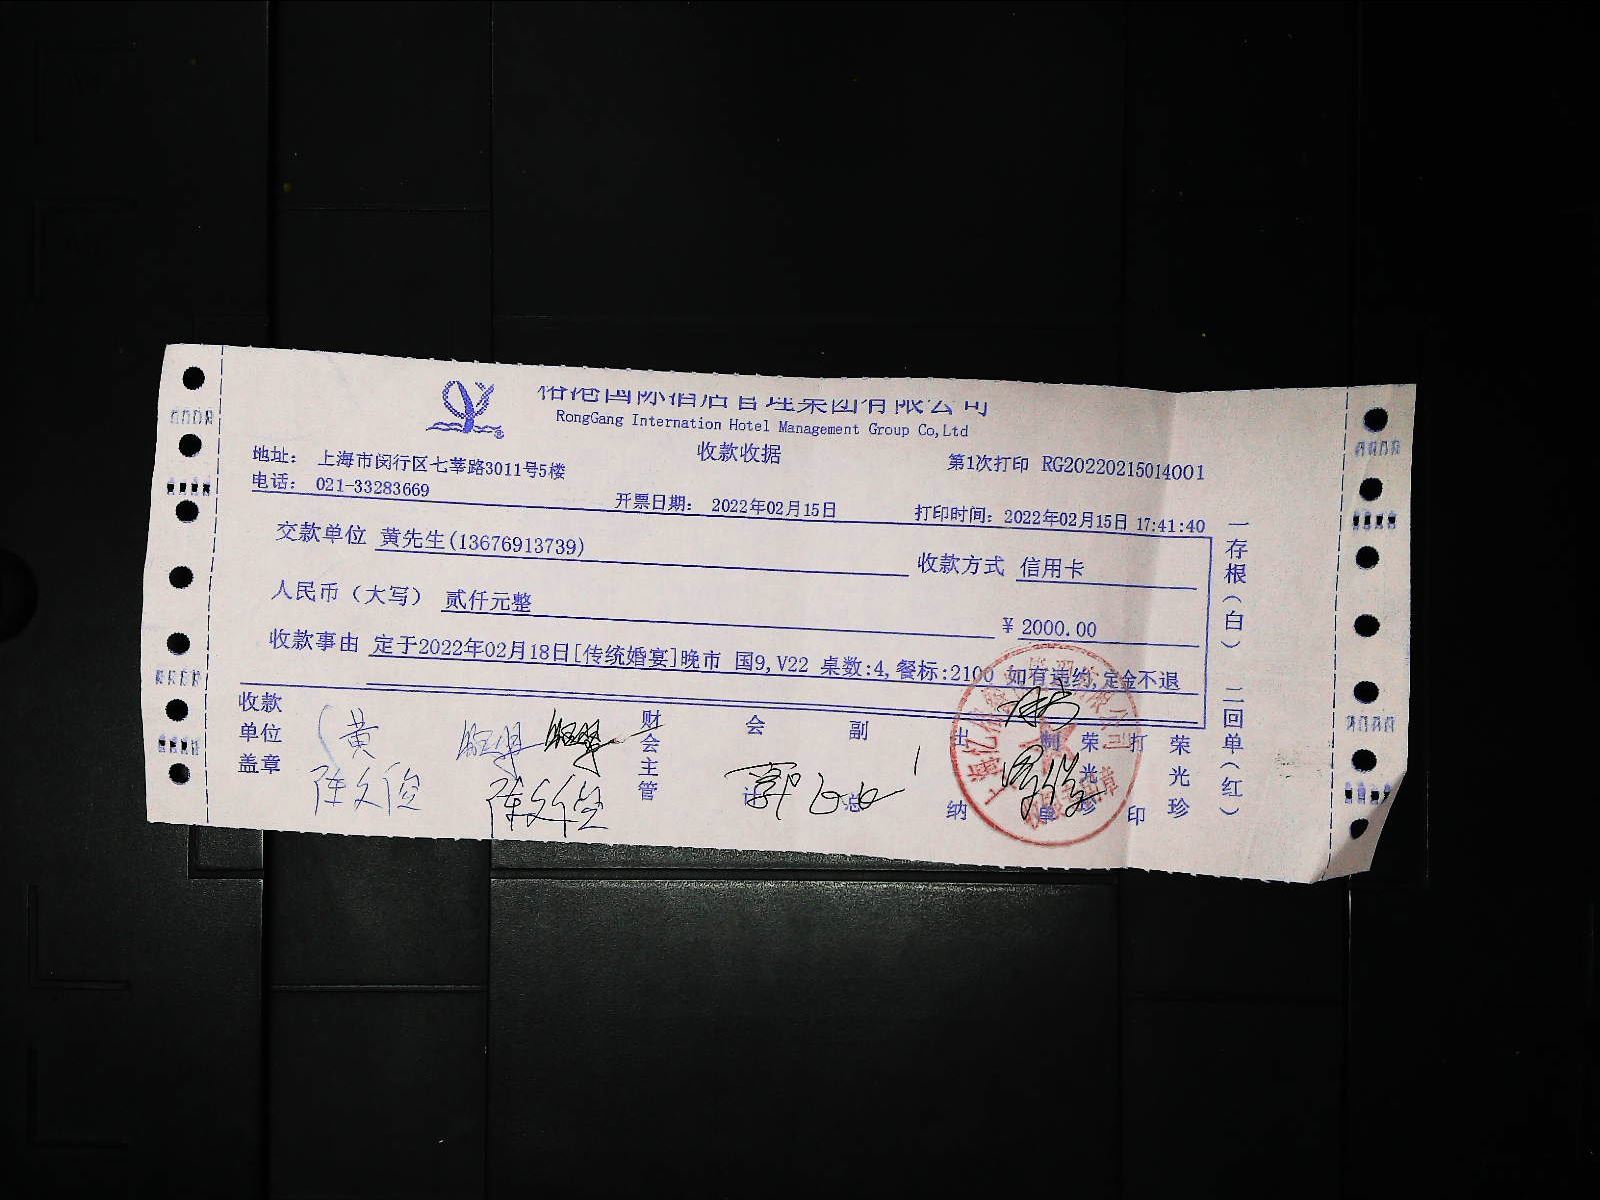 国际酒店管理集团有限公司
RongGang Internation Hotel Management Group Co,Ltd
收款收据
地址： 上海市闵行区七莘路3011号5楼
第1次打印 RG20220215014001
电话： 021-33283669
开票日期： 2022年02月15日
打印时间：2022年02月15日 17:41:40
交款单位 黄先生(13676913739)
收款方式 信用卡
人民币（大写） 贰仟元整
￥2000.00
收款事由 定于2022年02月18日[传统婚宴]晚市 国9,V22 桌数:4,餐标:2100 如有违约,定金不退
收款单位盖章
黄
财会主管
会计
副总
出纳
制单
荣光珍
打印
荣光珍
一存根（白） 二回单（红）